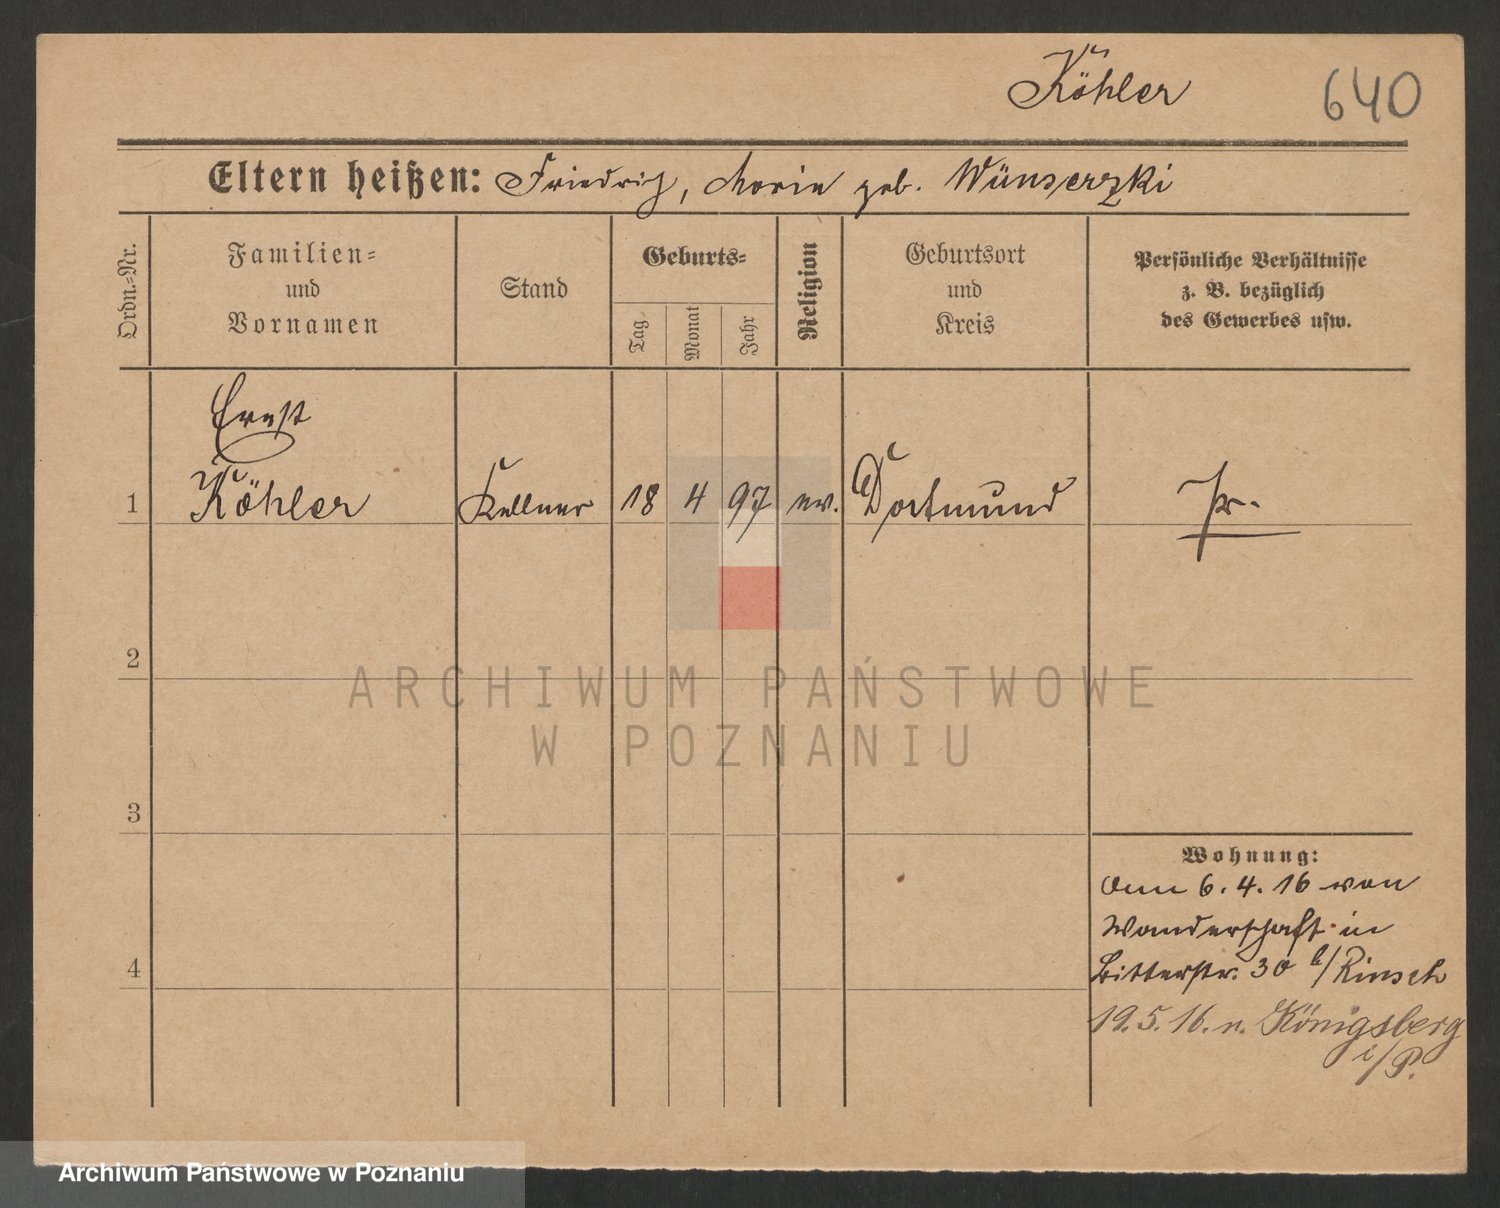 Köhler 640
Eltern heißen: Friedrich, Marie geb.
Ordn.-Nr.
Familien-
und
Vornamen
Stand
Geburts-
Tag
Monat
Jahr
Religion
Geburtsort
und
Kreis
Persönliche Verhältnisse
z. B. bezüglich
des Gewerbes usw.
Ernst
1 Köhler Kellner 18 4 97 ev. Dortmund Pr.
2
3
4
Wohnung:
6.4.16 von
Wanderschaft in
Bitterstr. 30 b/ Rinsch
19.5.16. n. Königsberg
i/P.
ARCHIWUM PAŃSTWOWE
W POZNANIU
Archiwum Państwowe w Poznaniu